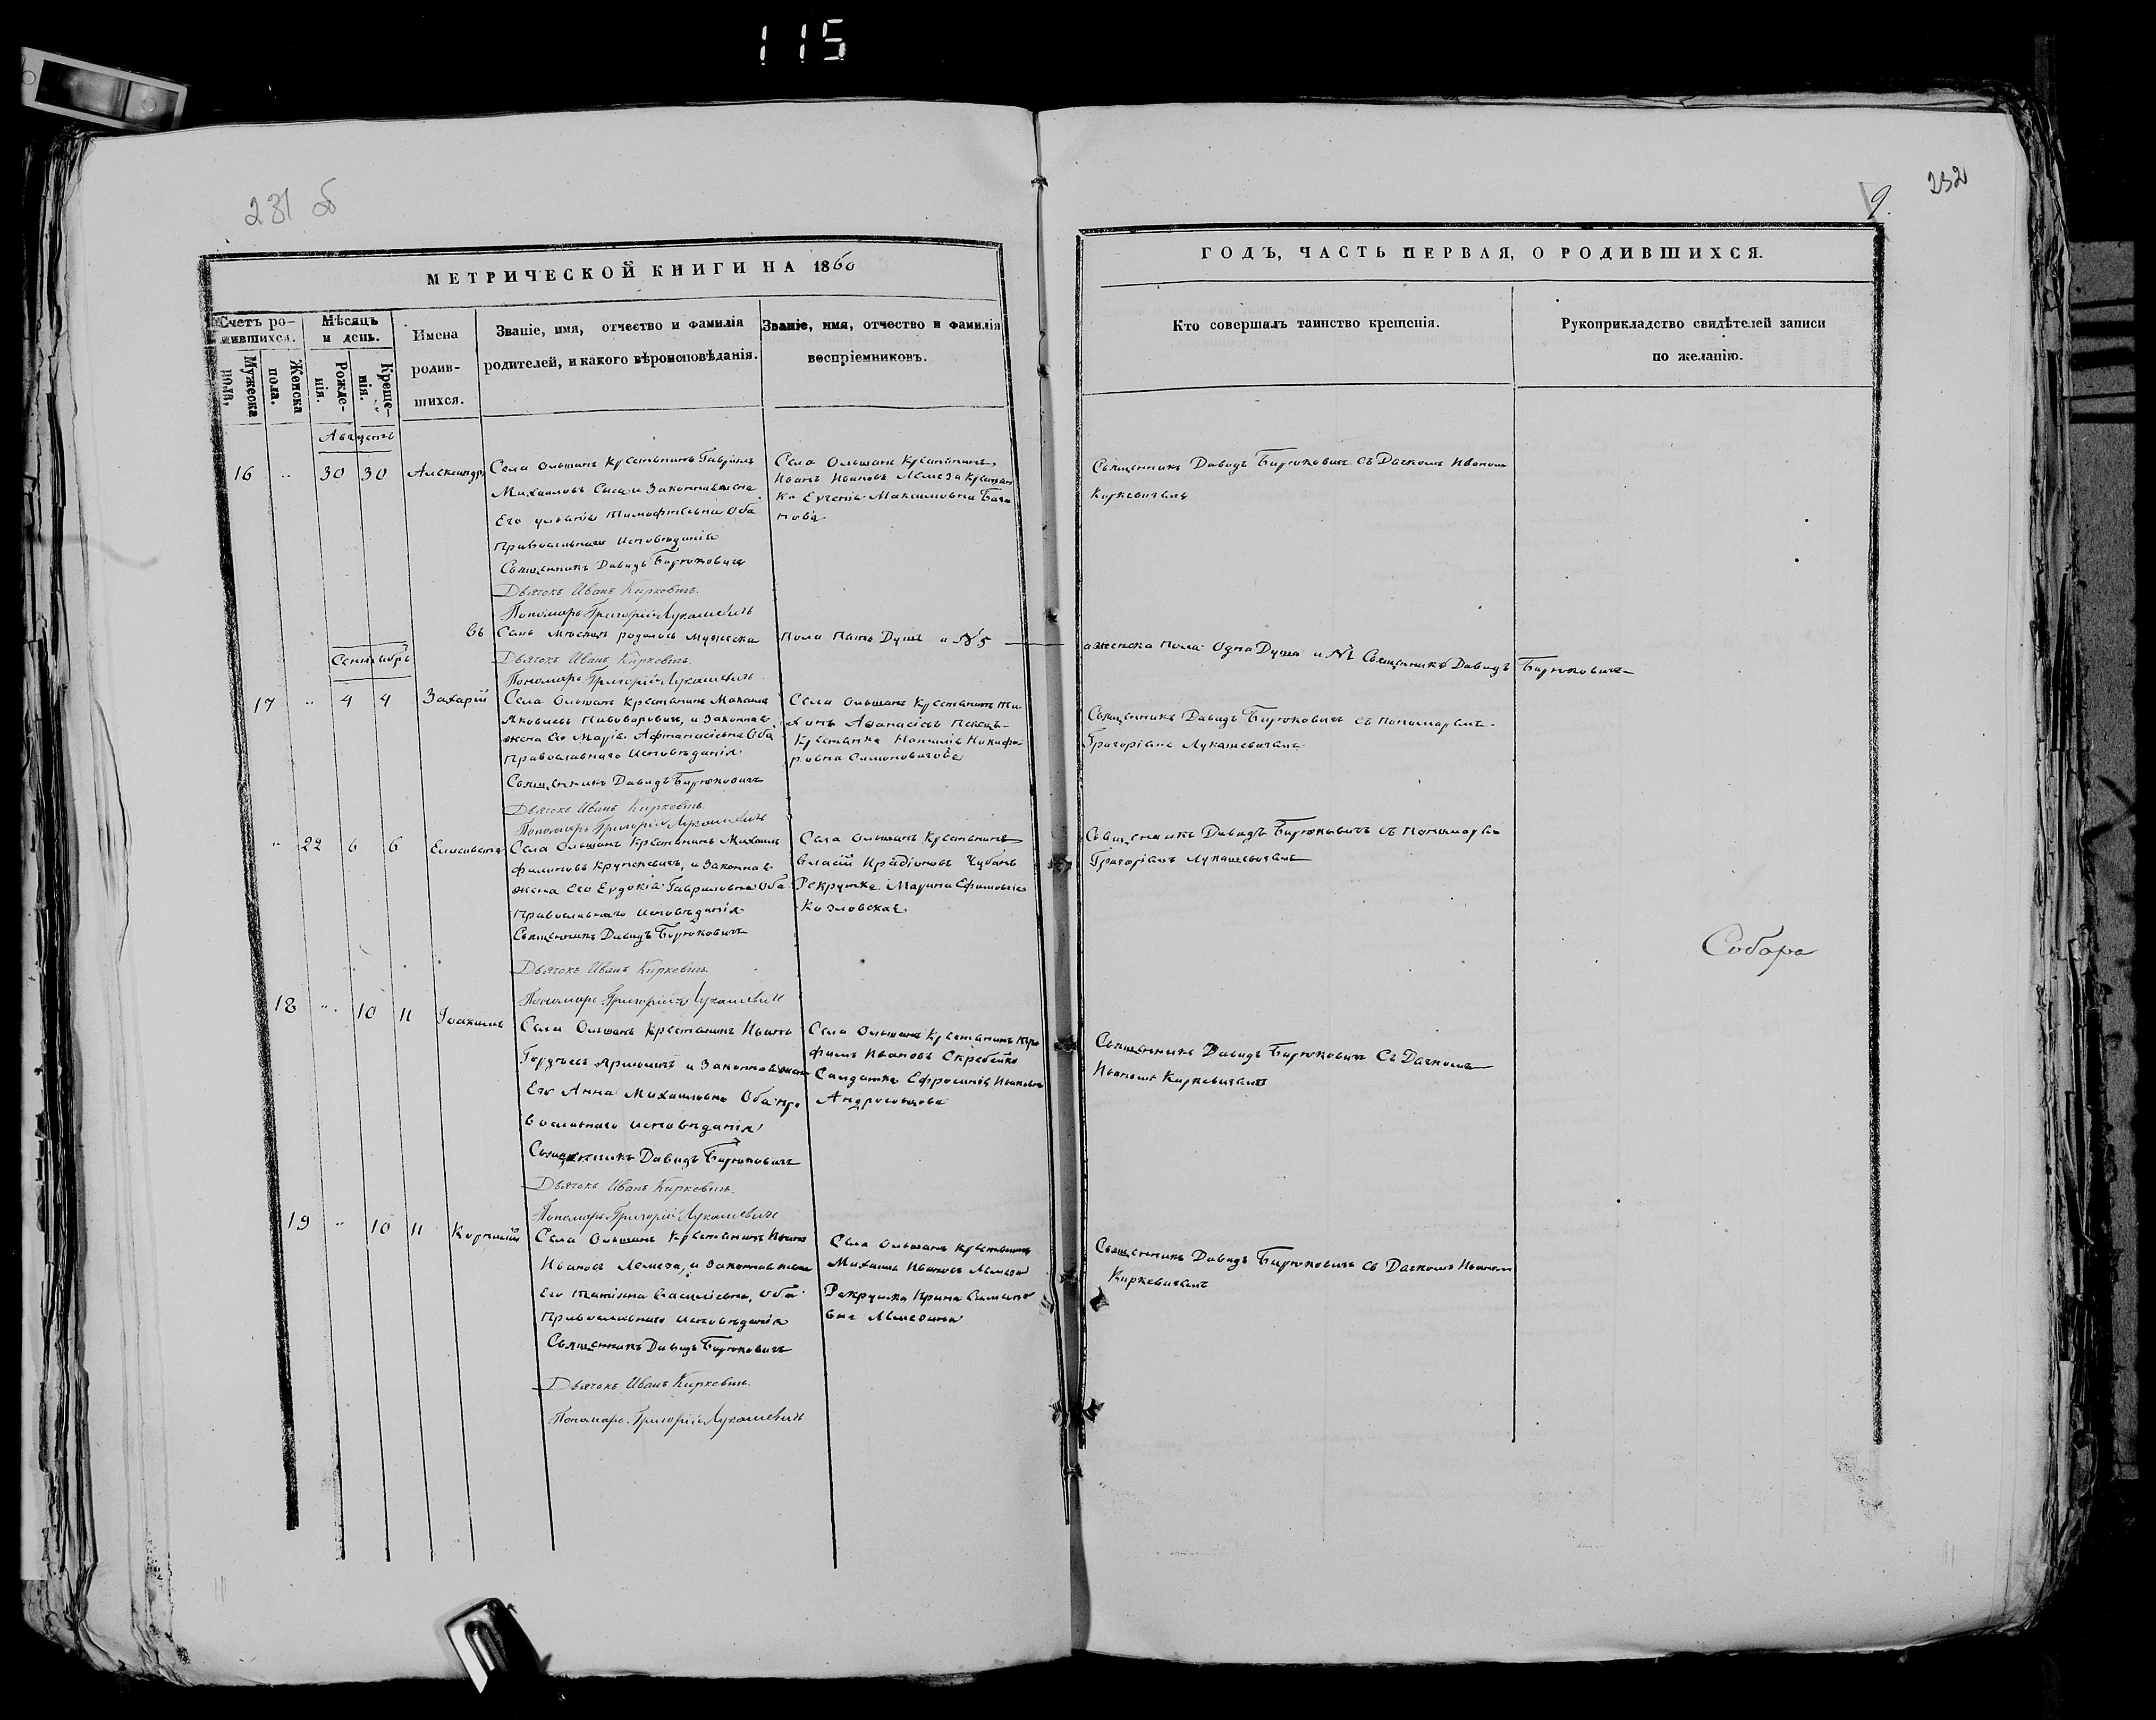 115
231 об
232
9.
МЕТРИЧЕСКОЙ КНИГИ НА 1860
ГОДЪ, ЧАСТЬ ПЕРВАЯ, О РОДИВШИХСЯ.
Счетъ ро-
дившихся.
Мужеска
пола.
Женска
пола.
Мѣсяцъ
и день.
Рожде-
нія.
Креще-
нія.
Имена
родив-
шихся.
Званіе, имя, отчество и фамилія
родителей, и какого вѣроисповѣданія.
Званіе, имя, отчество и фамилія
воспріемниковъ.
Кто совершалъ таинство крещенія.
Рукоприкладство свидѣтелей записи
по желанію.
Августъ
16 " 30 30 Александръ
Села Ольшанъ Крестьянинъ Гавріилъ
Михаиловъ и Законная жена
Его Ульянія Тимофѣевна Оба
Православнаго Исповѣданія
Священникъ Давидъ Бирюковичъ
Дьячокъ Иванъ Киркевичъ.
Пономарь Григорій Лукашевичъ
Села Ольшанъ Крестьянинъ
Иванъ Ивановъ Лемеза Крестьян
ка Евгенія Максимовна
Священникъ Давидъ Бирюковичъ съ Дьячкомъ Иваномъ
Киркевичемъ
Въ Семъ Мѣсяцѣ родилось Мужеска Пола Пять Душъ и №5 а женска Пола Одна Душа и №1 Священникъ Давидъ Бирюковичъ
Дьячокъ Иванъ Киркевичъ.
Пономарь Григорій Лукашевичъ
Сентябрь
17 " 4 4 Захарій
Села Ольшанъ Крестьянинъ
Яковлевъ Пивоваровичъ, и Законная
жена Его Марія Афанасіевна Оба
Православнаго Исповѣданія
Священникъ Давидъ Бирюковичъ
Дьячокъ Иванъ Киркевичъ.
Пономарь Григорій Лукашевичъ
Села Ольшанъ Крестьянинъ Ти
хонъ Афанасіевъ
Крестьянка Наталія Никифо
ровна Симоновичова
Священникъ Давидъ Бирюковичъ съ Пономаремъ
Григоріемъ Лукашевичемъ
" 22 6 6 Елисавета
Села Ольшанъ Крестьянинъ Михаилъ
Филиповъ Крупкевичъ, и Законная
жена Его Евдокія Гавриловна Оба
Православнаго Исповѣданія
Священникъ Давидъ Бирюковичъ
Дьячокъ Иванъ Киркевичъ.
Пономарь Григорій Лукашевичъ
Села Ольшанъ Крестьянинъ
Власій Иродіоновъ Чубанъ
Рекрутка Марина Ефимовна
Козловская
Священникъ Давидъ Бирюковичъ съ Пономаремъ
Григоріемъ Лукашевичемъ
Собора
18 " 10 11 Іоакимъ
Села Ольшанъ Крестьянинъ Иванъ
Гордѣевъ и Законная жена
Его Анна Михайловна Оба Пра
вославнаго Исповѣданія
Священникъ Давидъ Бирюковичъ
Дьячокъ Иванъ Киркевичъ.
Пономарь Григорій Лукашевичъ
Села Ольшанъ Крестьянинъ Тро
фимъ Ивановъ Скребейко
Солдатка Ефросинія Ивановна
Священникъ Давидъ Бирюковичъ съ Дьячкомъ
Иваномъ Киркевичемъ
19 " 10 11 Корнилій
Села Ольшанъ Крестьянинъ Иванъ
Ивановъ Лемеза, и Законная жена
Его Татіяна Василіевна, Оба
Православнаго Исповѣданія
Священникъ Давидъ Бирюковичъ
Дьячокъ Иванъ Киркевичъ.
Пономарь Григорій Лукашевичъ
Села Ольшанъ Крестьянинъ
Михаилъ Ивановъ Лемеза
Рекрутка Ирина Симоно
вна Лемезина
Священникъ Давидъ Бирюковичъ съ Дьячкомъ Иваномъ
Киркевичемъ